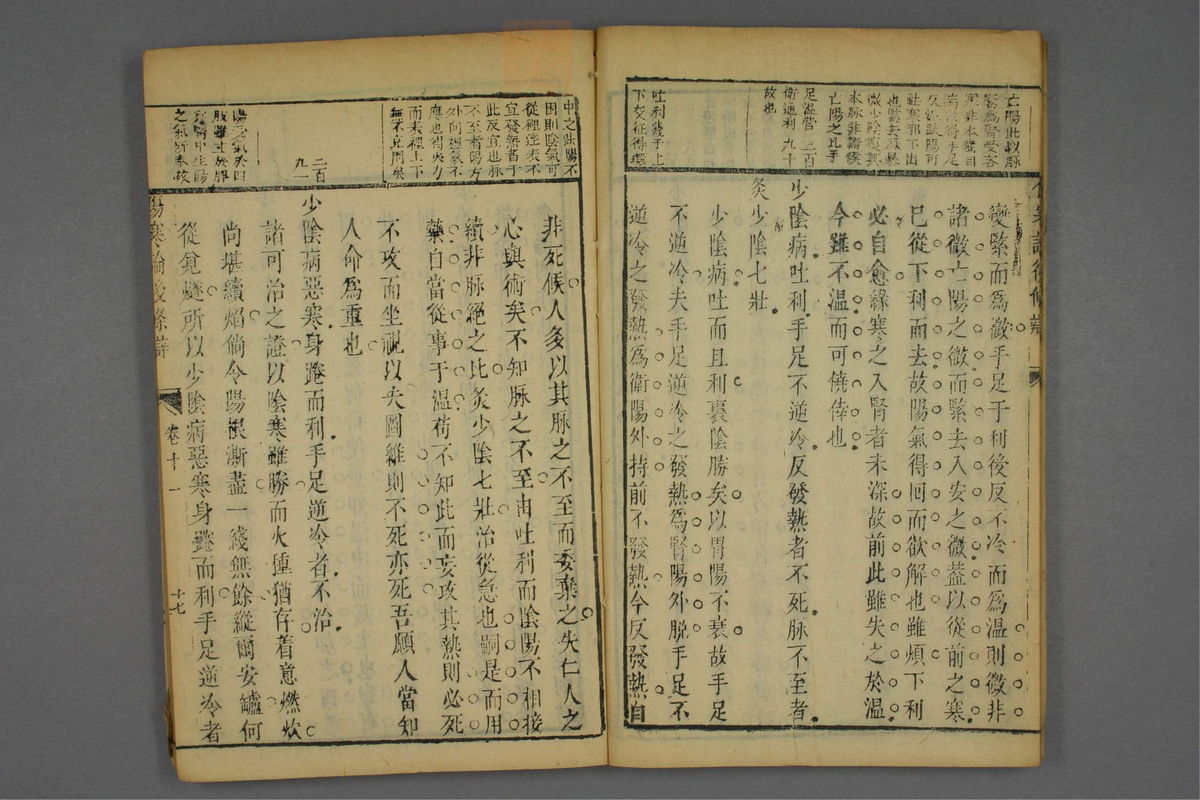 變緊而為微手足于利後反不冷而為溫則微非
諸微亡陽之微而緊去入安之微葢以從前之寒
已從下利而去故陽氣得回而欲解也雖煩下利
必自愈緣寒之入腎者未深故前此雖失之於溫
今雖不溫而可僥倖也
少陰病吐利手足不逆冷反發熱者不死脉不至者
灸少陰七壯
少陰病吐而且利裏陰勝矣以胃陽不衰故手足
不逆冷夫手足逆冷之發熱為腎陽外脫手足不
逆冷之發熱為衛陽外持前不發熱今反發熱自
吐利幾于上
下交征得還
中之陽不
因則陰氣可
從裡達表不
宜發熱者于
此反宜也脉
不至者陽方
外向裡氣不
應也得灸力
而表裡上下
無不充周矣
二百
九一
非死候人多以其脉之不至而委棄之失仁人之
心與術矣不知脉之不至由吐利而陰陽不相接
續非脉絕之比灸少陰七壯治從急也嗣是而用
藥自當從事于溫苟不知此而妄攻其熱則必死
不攻而坐視以失圖維則不死亦死吾願人當知
人命為重也
少陰病惡寒身踡而利手足逆冷者不治
諸可治之證以陰寒雖勝而火種猶存着意燃炊
尚堪續焰倘令陽根漸盡一綫無餘縱爾安罏何
從覓燧所以少陰病惡寒身踡而利手足逆冷者
傷寒論後條辯
卷十一
十七